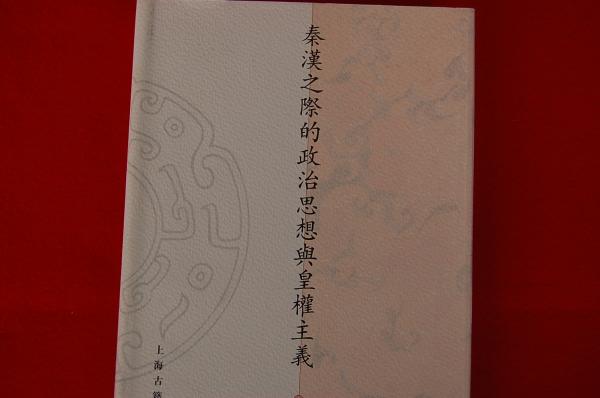 秦漢之際的政治思想與皇權主義
上海古籍